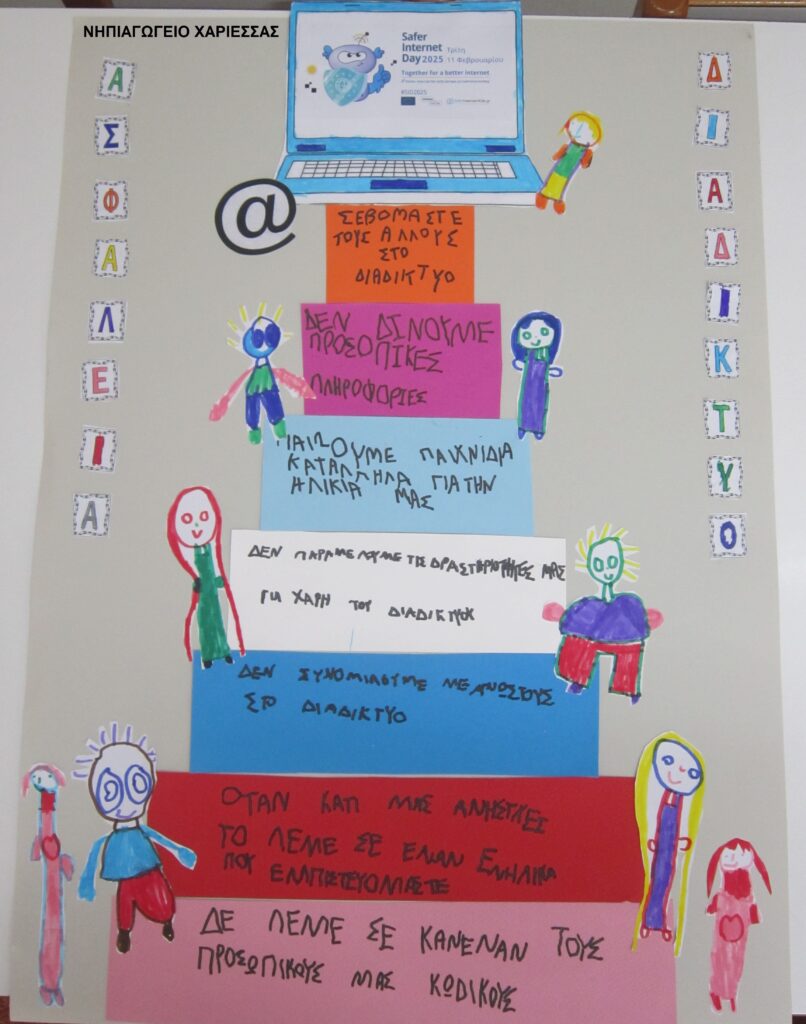 ΝΗΠΙΑΓΩΓΕΙΟ ΧΑΡΙΕΣΣΑΣ
Safer
Internet
Day 2025 Τρίτη 11 Φεβρουαρίου
Together for a better internet
#SID2025
ΑΣΦΑΛΕΙΑ
ΔΙΑΔΙΚΤΥΟ
@
ΣΕΒΟΜΑΣΤΕ
ΤΟΥΣ ΑΛΛΟΥΣ
ΣΤΟ
ΔΙΑΔΙΚΤΥΟ
ΔΕΝ ΔΙΝΟΥΜΕ
ΠΡΟΣΟΠΙΚΕΣ
ΠΛΗΡΟΦΟΡΙΕΣ
ΠΑΙΖΟΥΜΕ ΠΑΙΧΝΙΔΙΑ
ΚΑΤΑΛΛΗΛΑ ΓΙΑ ΤΗΝ
ΗΛΙΚΙΑ ΜΑΣ
ΔΕΝ ΠΑΡΑΜΕΛΟΥΜΕ ΤΙΣ ΔΡΑΣΤΗΡΙΟΤΗΤΕΣ ΜΑΣ
ΓΙΑ ΧΑΡΗ ΤΟΥ ΔΙΑΔΙΚΤΥΟΥ
ΔΕΝ ΣΥΝΟΜΙΛΟΥΜΕ ΜΕ ΑΓΝΩΣΤΟΥΣ
ΣΤΟ ΔΙΑΔΙΚΤΥΟ
ΟΤΑΝ ΚΑΤΙ ΜΑΣ
ΤΟ ΛΕΜΕ ΣΕ ΕΝΑΝ ΕΝΗΛΙΚΑ
ΠΟΥ ΕΜΠΙΣΤΕΥΟΜΑΣΤΕ
ΔΕ ΛΕΜΕ ΣΕ ΚΑΝΕΝΑΝ ΤΟΥΣ
ΠΡΟΣΩΠΙΚΟΥΣ ΜΑΣ ΚΩΔΙΚΟΥΣ